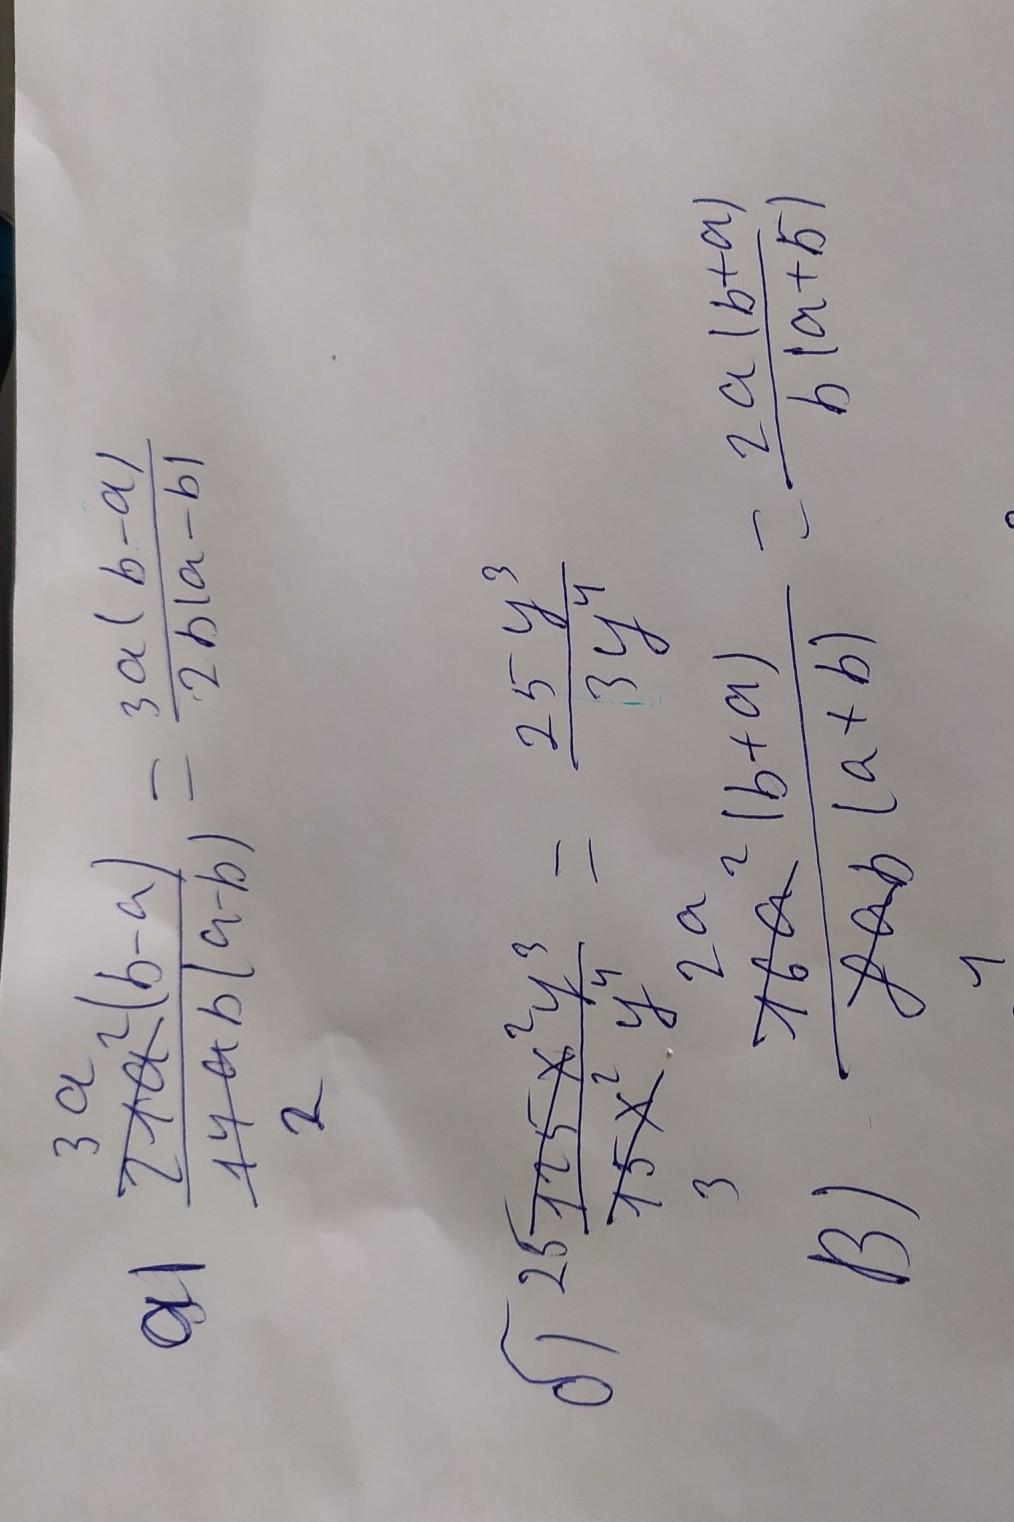 а) 3a 21a²(b-a) / 14ab(a-b) 2 = 3a(b-a) / 2b(a-b)
б) 25 125x²y³ / 15x²y⁴ 3 = 25y³ / 3y⁴
В) 2a 16a²(b+a) / 8ab(a+b) 1 = 2a(b+a) / b(a+b)